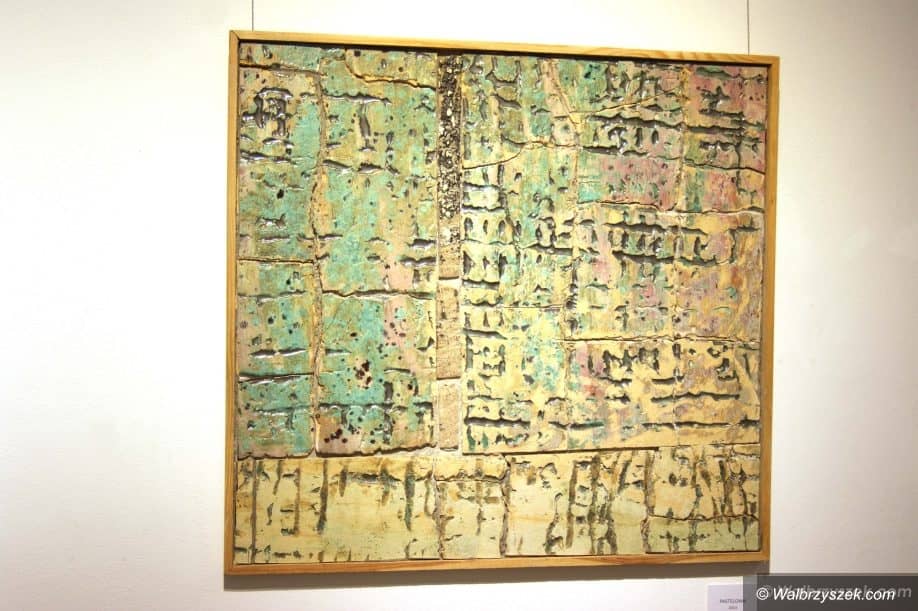 PASTELOWY
© Walbrzyszek.com